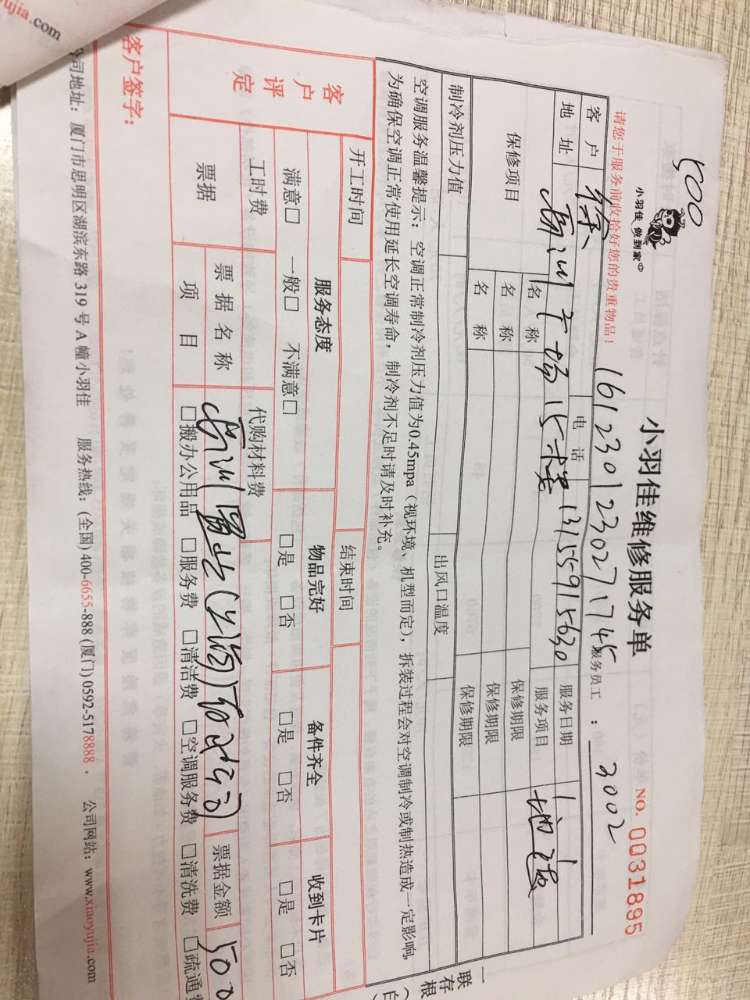 小羽佳维修服务单
500
小羽佳 做到家
NO. 0031895
1612301230271745
服务员工：3002
请您于服务前收拾好您的贵重物品！
客户 徐 电话 13155915630 服务日期
地址 服务项目
保修项目 名称 保修期限
名称 保修期限
名称 保修期限
制冷剂压力值 出风口温度
空调服务温馨提示：空调正常制冷剂压力值为0.45mpa（视环境、机型而定），拆装过程会对空调制冷或制热造成一定影响，
为确保空调正常使用延长空调寿命，制冷剂不足时请及时补充。
开工时间 结束时间
客户评定 服务态度 物品完好 备件齐全 收到卡片
满意□ 一般□ 不满意□ □是 □否 □是 □否 □是 □否
工时费 代购材料费
票据 票据名称 票据金额 500
项目 □搬办公用品 □服务费 □清洁费 □空调服务费 □清洗费 □疏通
客户签字：
司地址：厦门市思明区湖滨东路 319 号 A 幢小羽佳 服务热线：(全国) 400-6655-888 (厦门) 0592-5178888 . 公司网站：www.xiaoyujia.com
一联存根（白
yujia.com